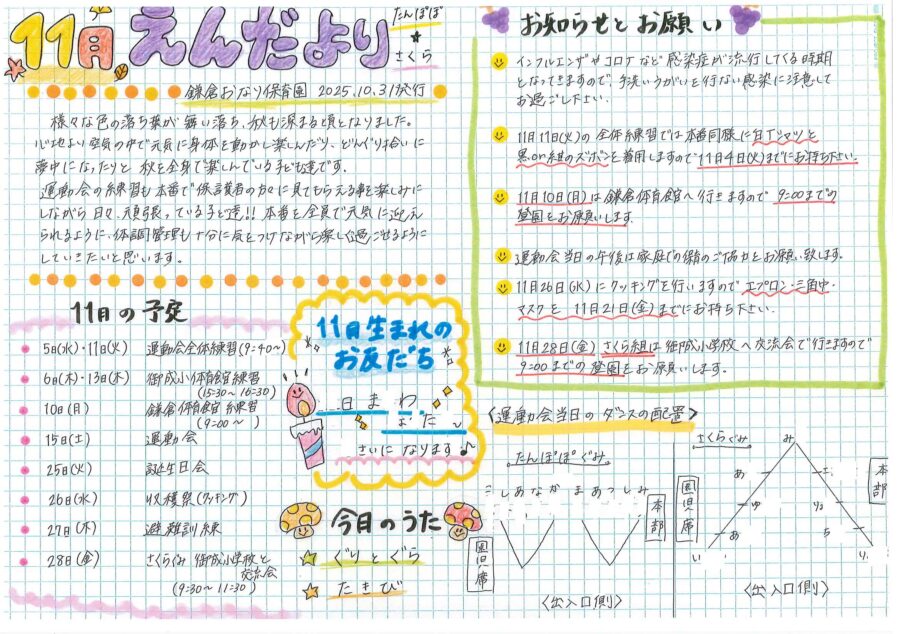 11月 えんだより
たんぽぽ
さくら
鎌倉おなり保育園 2025.10.31発行
様々な色の落ち葉が舞い落ち、秋も深まる頃となりました。
心地よい空気の中で元気に身体を動かし楽しんだり、どんぐり拾いに
夢中になったりと秋を全身で楽しんでいる子ども達です。
運動会の練習も本番で保護者の方々に見てもらえる事を楽しみに
しながら日々、頑張っている子ども達!! 本番を全員で元気に迎え
られるように、体調管理も十分に気をつけながら楽しく過ごせるように
していきたいと思います。
11月の予定
5日(水)・11日(火) 運動会全体練習(9:40〜)
6日(木)・13日(木) 御成小体育館練習
(15:30〜16:30)
10日(月) 鎌倉体育館練習
(9:00〜 )
15日(土) 運動会
25日(火) 誕生日会
26日(水) 収穫祭(クッキング)
27日(木) 避難訓練
28日(金) さくらぐみ 御成小学校と
交流会
(9:30〜11:30)
11月生まれの
お友だち
日 まわ
さいになります♪
今月のうた
ぐりとぐら
たきび
お知らせとお願い
インフルエンザやコロナなど感染症が流行してくる時期
となってきますので、手洗いうがいを行ない感染に注意して
お過ごし下さい。
11月11日(火)の全体練習では本番同様に白Tシャツと
黒or紺のズボンを着用しますので11月4日(火)までにお持ち下さい。
11月10日(月)は鎌倉体育館へ行きますので9:00までの
登園をお願いします。
運動会当日の午後は家庭での保育のご協力をお願い致します。
11月26日(水)にクッキングを行いますのでエプロン・三角巾・
マスクを11月21日(金)までにお持ち下さい。
11月28日(金)さくら組は御成小学校へ交流会で行きますので
9:00までの登園をお願いします。
〈運動会当日のダンスの配置〉
たんぽぽぐみ
しあなかまあっしみ
本部
園児席
〈出入口側〉
さくらぐみ
み
園児席
本部
あ
ゆ
あ
い
ち
り
〈出入口側〉